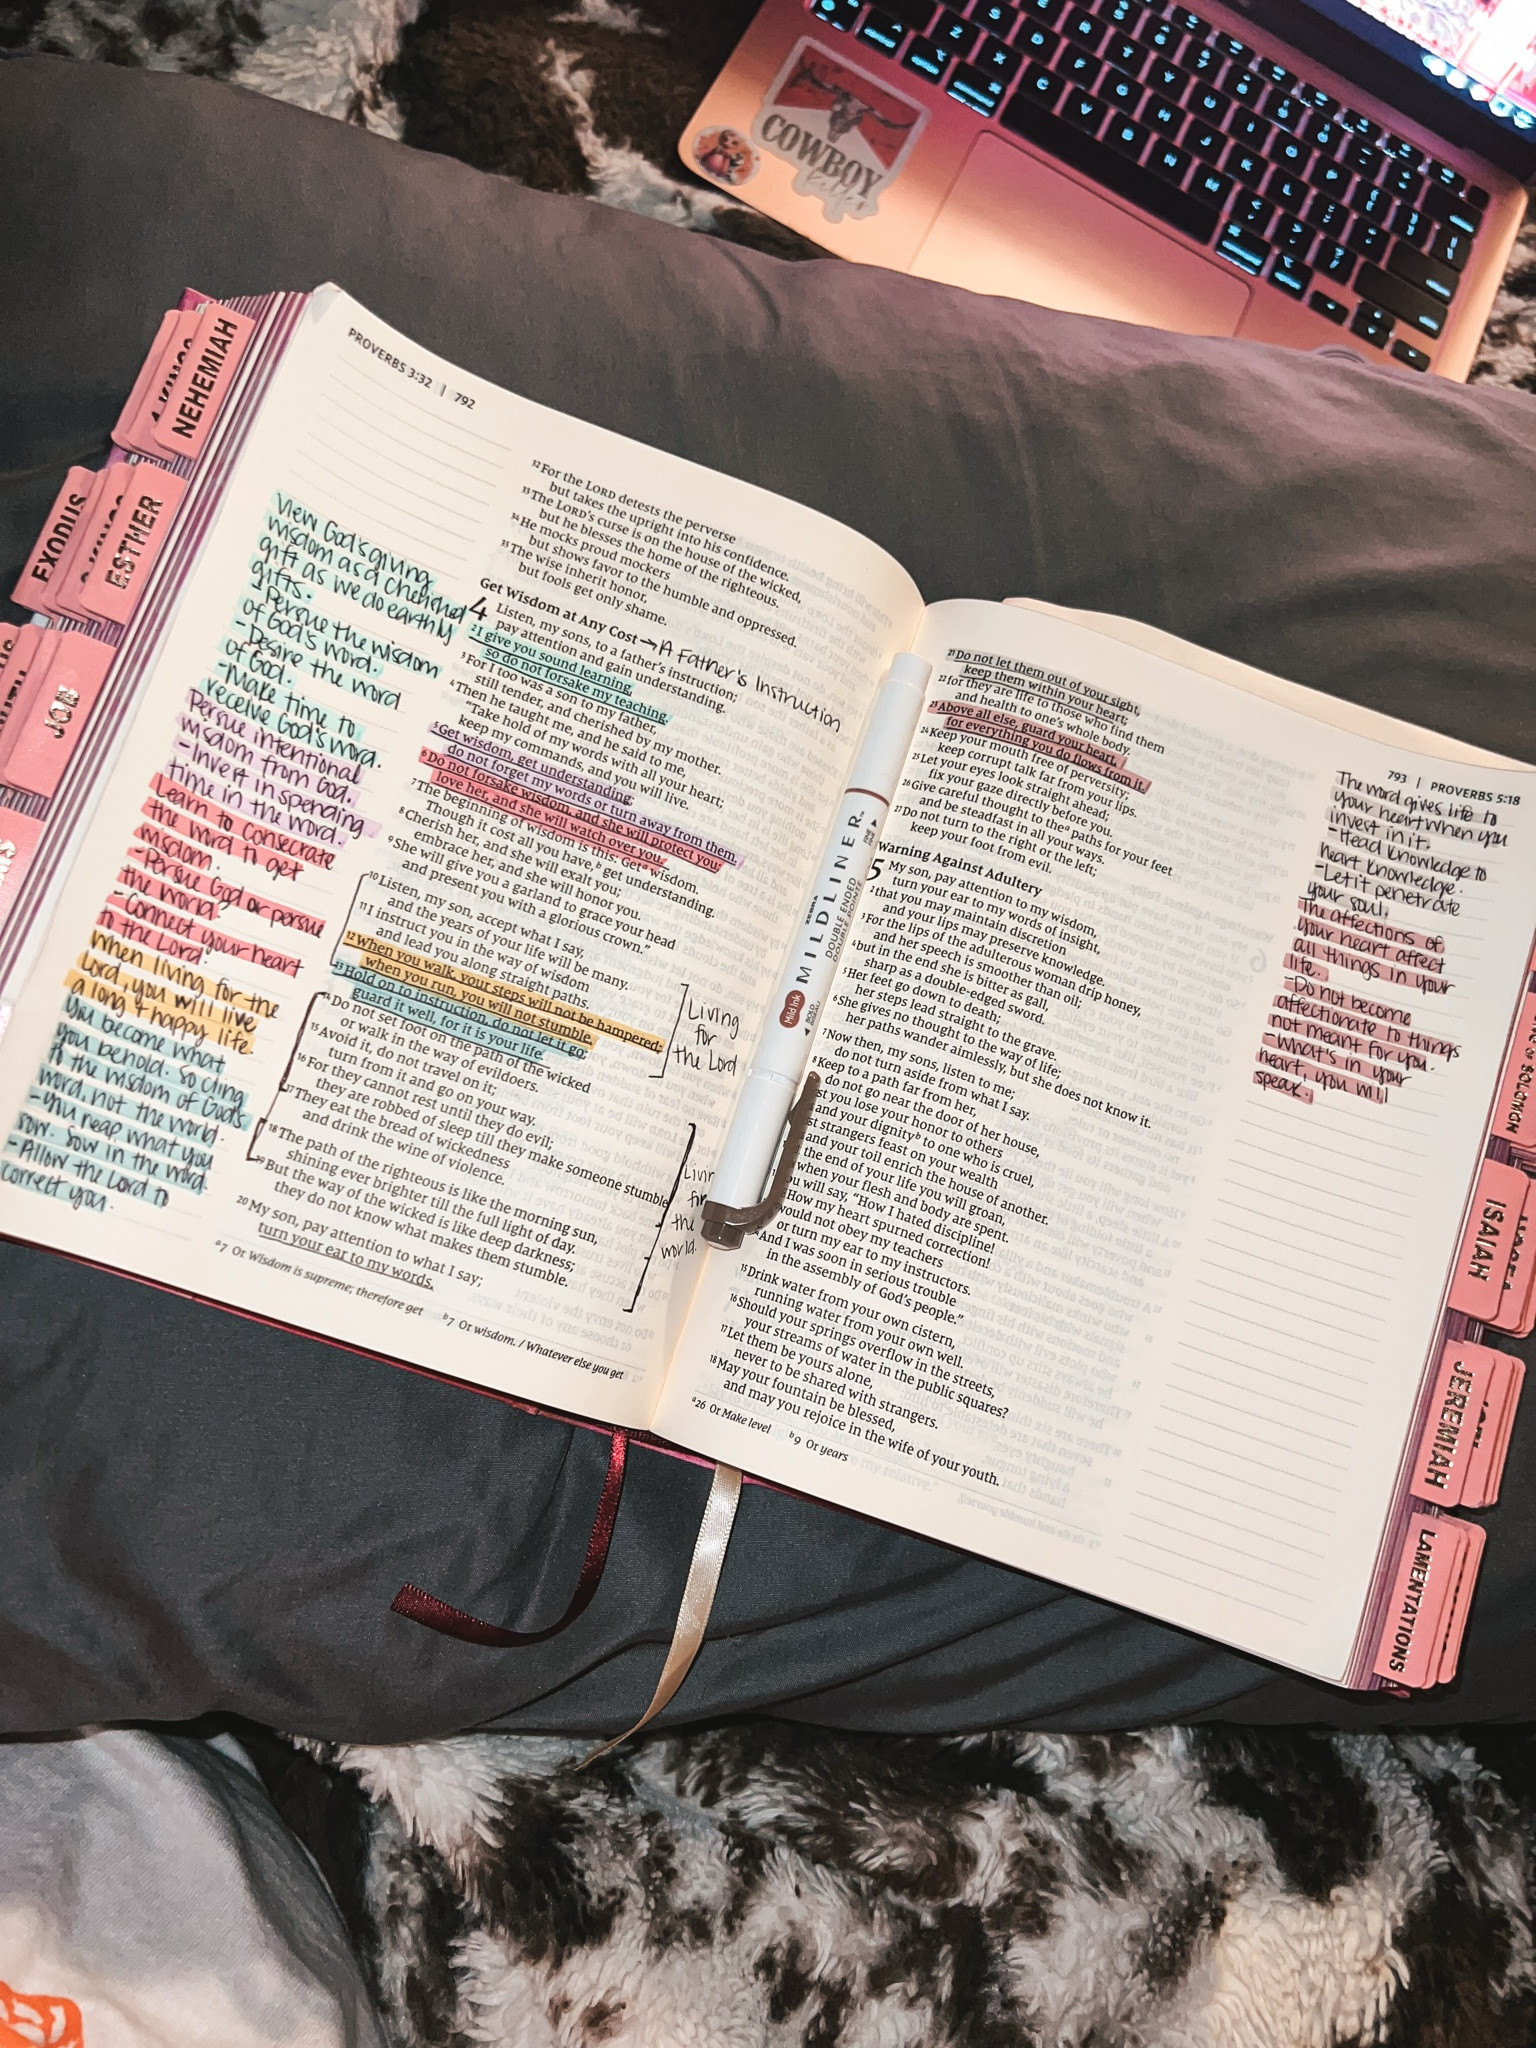 COWBOY
control
option
command
NEHEMIAH
EXODUS
ESTHER
JOB
PROVERBS 3:32 | 792
View God's giving
wisdom as a cherished
gift as we do earthly
gifts.
- Persue the wisdom
of God's word.
- Desire the word
of God.
- Make time to
receive God's word.
Persue intentional
wisdom from God.
- Invert in spending
time in the word.
Learn to consecrate
the word to get
wisdom.
- Persue God or persue
the world?
- Connect your heart
to the Lord.
When living for the
Lord, you will live
a long + happy life.
You become what
you behold. So cling
to the wisdom of God's
word, not the world.
- You reap what you
sow. Sow in the word.
- Allow the Lord to
correct you.
32 For the LORD detests the perverse
but takes the upright into his confidence.
33 The LORD's curse is on the house of the wicked,
but he blesses the home of the righteous.
34 He mocks proud mockers
but shows favor to the humble and oppressed.
35 The wise inherit honor,
but fools get only shame.
Get Wisdom at Any Cost → A Father's Instruction
4 Listen, my sons, to a father's instruction;
pay attention and gain understanding.
2 I give you sound learning,
so do not forsake my teaching.
3 For I too was a son to my father,
still tender, and cherished by my mother.
4 Then he taught me, and he said to me,
"Take hold of my words with all your heart;
keep my commands, and you will live.
5 Get wisdom, get understanding;
do not forget my words or turn away from them.
6 Do not forsake wisdom, and she will protect you;
love her, and she will watch over you.
7 The beginning of wisdom is this: Get a wisdom.
Though it cost all you have, b get understanding.
8 Cherish her, and she will exalt you;
embrace her, and she will honor you.
9 She will give you a garland to grace your head
and present you with a glorious crown."
10 Listen, my son, accept what I say,
and the years of your life will be many.
11 I instruct you in the way of wisdom
and lead you along straight paths.
12 When you walk, your steps will not be hampered;
when you run, you will not stumble.
13 Hold on to instruction, do not let it go;
guard it well, for it is your life.
14 Do not set foot on the path of the wicked
or walk in the way of evildoers.
15 Avoid it, do not travel on it;
turn from it and go on your way.
16 For they cannot rest until they do evil;
they are robbed of sleep till they make someone stumble.
17 They eat the bread of wickedness
and drink the wine of violence.
18 The path of the righteous is like the morning sun,
shining ever brighter till the full light of day.
19 But the way of the wicked is like deep darkness;
they do not know what makes them stumble.
20 My son, pay attention to what I say;
turn your ear to my words.
Living
for
the Lord
the
world.
a 7 Or Wisdom is supreme; therefore get
b 7 Or wisdom. / Whatever else you get
ZEBRA
MILDLINER
DOUBLE ENDED
Mild Ink
793 | PROVERBS 5:18
21 Do not let them out of your sight,
keep them within your heart;
22 for they are life to those who find them
and health to one's whole body.
23 Above all else, guard your heart,
for everything you do flows from it.
24 Keep your mouth free of perversity;
keep corrupt talk far from your lips.
25 Let your eyes look straight ahead;
fix your gaze directly before you.
26 Give careful thought to the a paths for your feet
and be steadfast in all your ways.
27 Do not turn to the right or the left;
keep your foot from evil.
Warning Against Adultery
5 My son, pay attention to my wisdom,
turn your ear to my words of insight,
2 that you may maintain discretion
and your lips may preserve knowledge.
3 For the lips of the adulterous woman drip honey,
and her speech is smoother than oil;
4 but in the end she is bitter as gall,
sharp as a double-edged sword.
5 Her feet go down to death;
her steps lead straight to the grave.
6 She gives no thought to the way of life;
her paths wander aimlessly, but she does not know it.
7 Now then, my sons, listen to me;
do not turn aside from what I say.
8 Keep to a path far from her,
do not go near the door of her house,
you lose your honor to others
and your dignity b to one who is cruel,
strangers feast on your wealth
and your toil enrich the house of another.
the end of your life you will groan,
when your flesh and body are spent.
will say, "How I hated discipline!
How my heart spurned correction!
would not obey my teachers
or turn my ear to my instructors.
And I was soon in serious trouble
in the assembly of God's people."
15 Drink water from your own cistern,
running water from your own well.
16 Should your springs overflow in the streets,
your streams of water in the public squares?
17 Let them be yours alone,
never to be shared with strangers.
18 May your fountain be blessed,
and may you rejoice in the wife of your youth.
a 26 Or Make level
b 9 Or years
The word gives life to
your heart when you
invest in it.
- Head knowledge to
heart knowledge.
- Let it penetrate
your soul.
The affections of
your heart affect
all things in your
life.
- Do not become
affectionate to things
not meant for you.
- What's in your
heart, you will
speak.
OF SOLOMON
ISAIAH
JEREMIAH
LAMENTATIONS